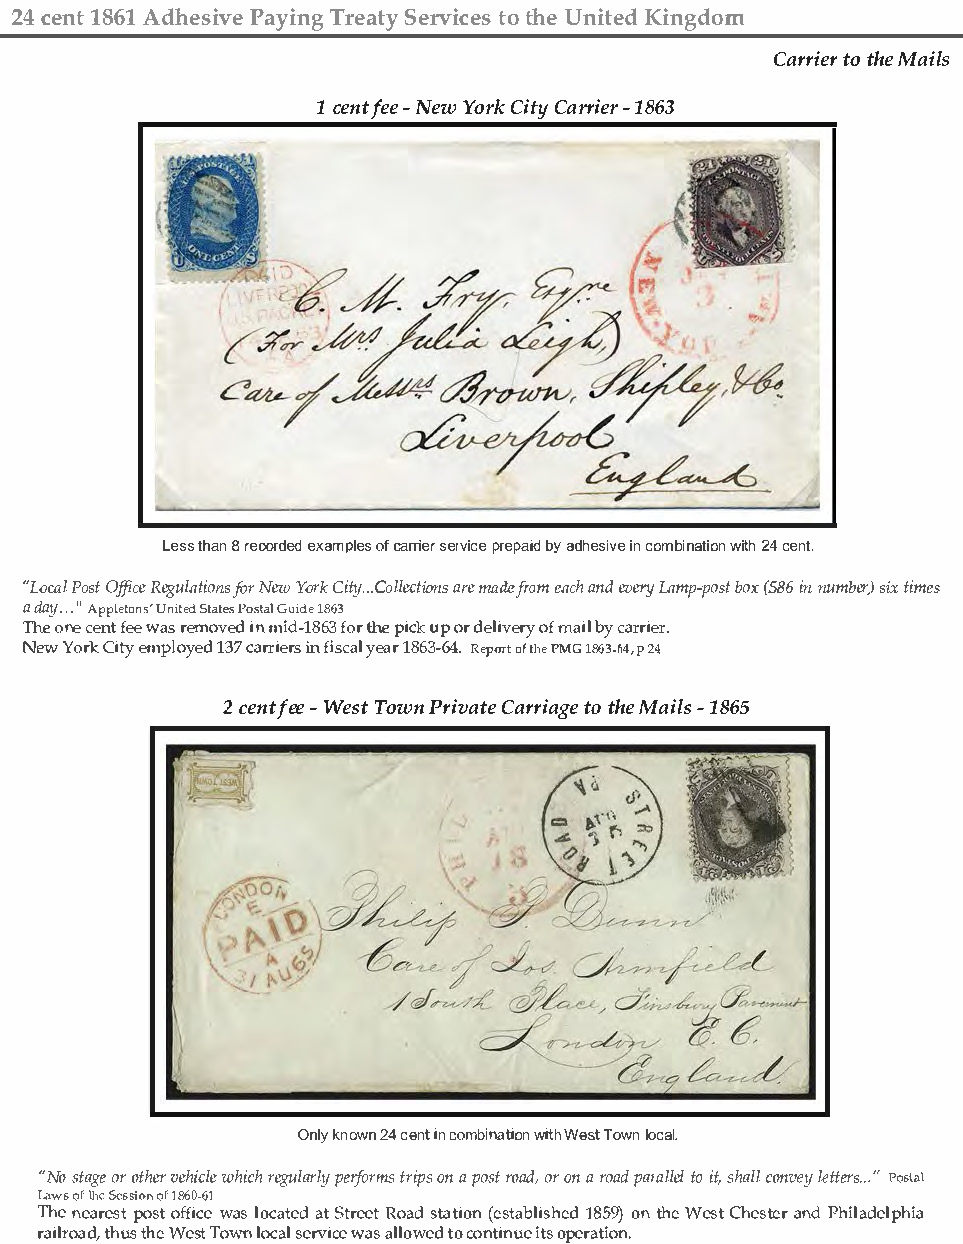 24 cent 1861 Adhesive Paying Treaty Services to the United Kingdom
Carrier to the Mails
1 cent fee - New York City Carrier - 1863
U.S. POSTAGE
ONE CENT
24 24
U.S. POSTAGE
PAID
LIVERPOOL
U.S. PACKET
NEW YORK
3
C. M. Fry, Esqre
(For Mrs Julia Leigh,)
Care of Messrs Brown, Shipley, & Co.
Liverpool
England
Less than 8 recorded examples of carrier service prepaid by adhesive in combination with 24 cent.
"Local Post Office Regulations for New York City...Collections are made from each and every Lamp-post box (586 in number) six times
a day..." Appletons' United States Postal Guide 1863
The one cent fee was removed in mid-1863 for the pick up or delivery of mail by carrier.
New York City employed 137 carriers in fiscal year 1863-64. Report of the PMG 1863-64, p 24
2 cent fee - West Town Private Carriage to the Mails - 1865
WEST TOWN
STREET ROAD PA
AUG
PHIL
18
LONDON
E
PAID
A
31 AU 65
Philip P. Dunn
Care of Jos. Armfield
1 South Place, Finsbury Pavement
London E. C.
England.
Only known 24 cent in combination with West Town local.
"No stage or other vehicle which regularly performs trips on a post road, or on a road parallel to it, shall convey letters..." Postal
Laws of the Session of 1860-61
The nearest post office was located at Street Road station (established 1859) on the West Chester and Philadelphia
railroad, thus the West Town local service was allowed to continue its operation.